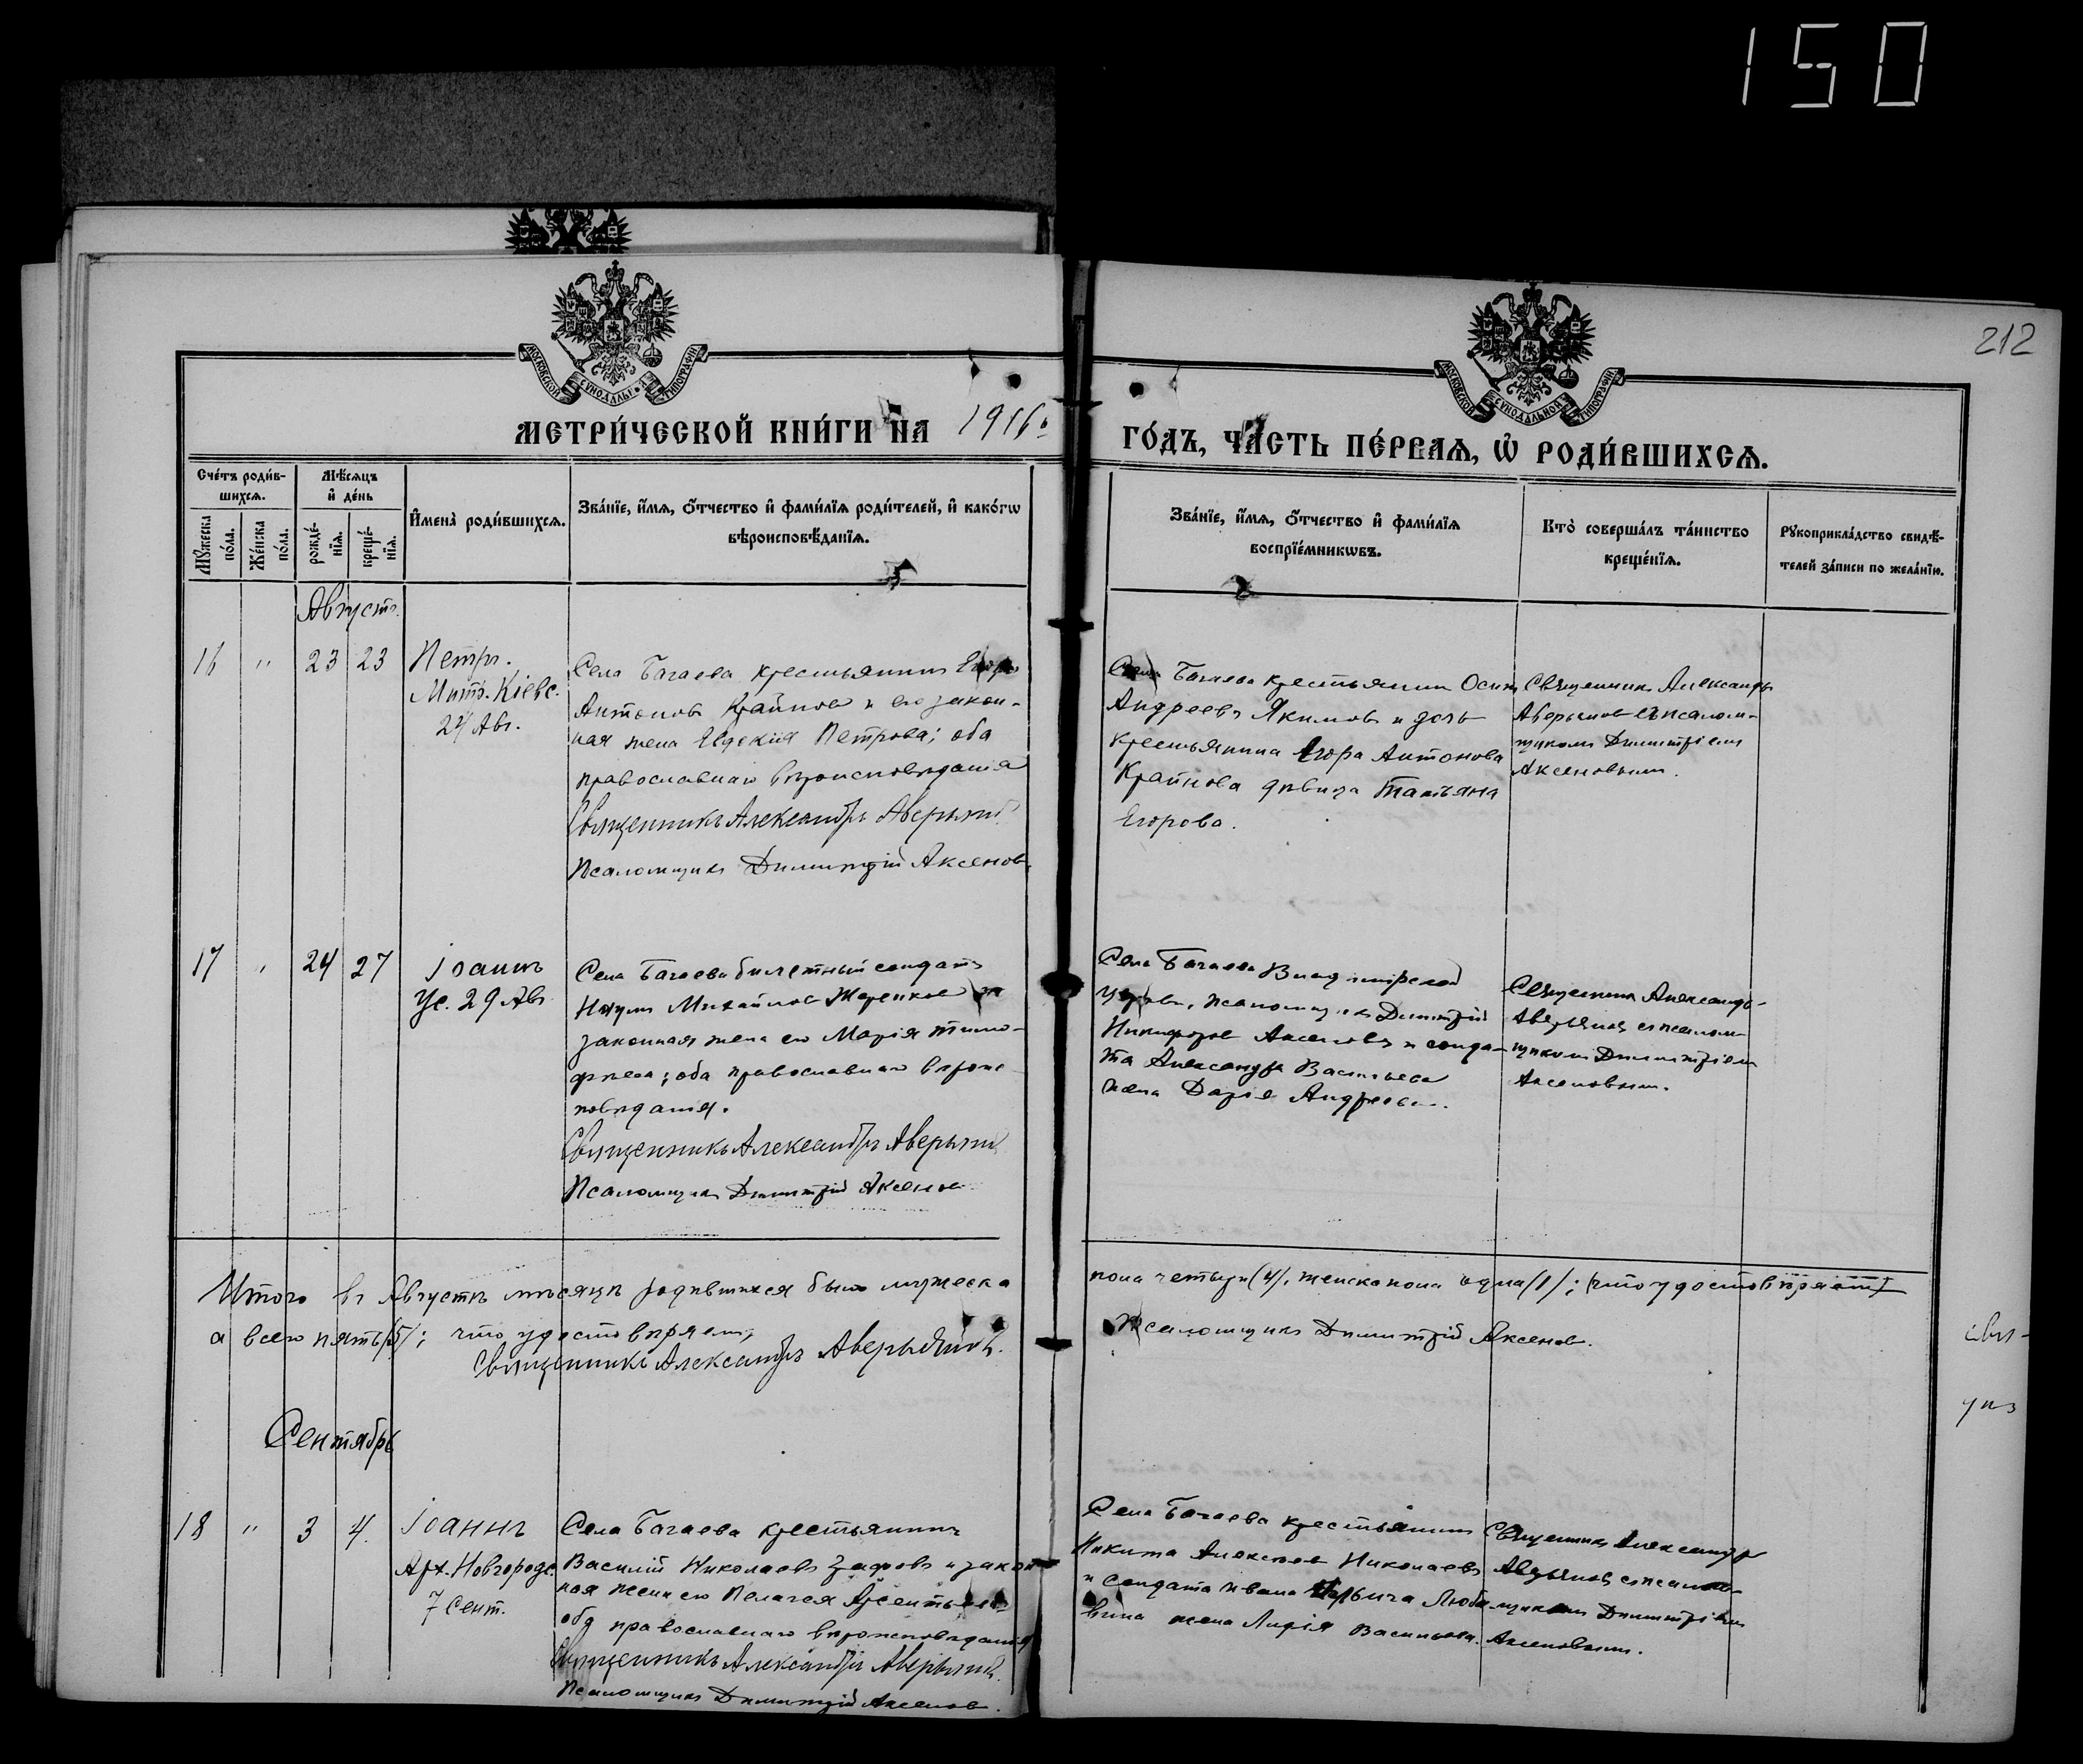 150
212
МОСКОВСКОЙ СѴНОДАЛЬНОЙ ТИПОГРАФІИ
МОСКОВСКОЙ СѴНОДАЛЬНОЙ ТИПОГРАФІИ
МЕТРИ́ЧЕСКОЙ КНИ́ГИ НА 1916 ГО́ДЪ, ЧА́СТЬ ПЕ́РВАЯ, Ѡ РОДИ́ВШИХСЯ.
Счетъ роди́в-
шихся.
Мѣсяцъ
и де́нь
Мꙋжеска
по́ла.
Же́нска
по́ла.
рожде́-
нїя.
креще́-
нїя.
Имена̀ роди́вшихся.
Зва́нїе, и́мя, о́тчество и фами́лїя роди́телей, и како́гѡ
вѣроисповѣ́данїя.
Зва́нїе, и́мя, о́тчество и фами́лїя
воспрїе́мникѡвъ.
Кто̀ соверша́лъ та́инство
креще́нїя.
Рꙋкоприкла́дство свидѣ́-
телей за́писи по жела́нїю.
Августъ
16 " 23 23
Петръ.
Митр. Кіевс.
24 Авг.
Села Багаева крестьянинъ Егоръ
Антоновъ Крайновъ и его закон-
ная жена Евдокія Петрова; оба
православнаго вѣроисповѣданія
Священникъ Александръ Аверьянов
Псаломщикъ Димитрій Аксенов
Села Багаева крестьянин Осип
Андреевъ Якимовъ и дочь
крестьянина Егора Антонова
Крайнова дѣвица Татьяна
Егорова.
Священникъ Александръ
Аверьяновъ съ псалом-
щикомъ Димитріемъ
Аксеновымъ.
17 " 24 27
Іоаннъ
Ус. 29 Авг
Села Багаева билетный солдатъ
Наумъ Михайловъ и
законная жена его Марія Тимо-
феева; оба православнаго вѣроис-
повѣданія.
Священникъ Александръ Аверьянов
Псаломщикъ Димитрій Аксенов
Села Багаева Владимірской
церкви, псаломщикъ Димитрій
Никифоровъ Аксеновъ и солда-
та Александра Васильева
жена Дарія Андреева.
Священникъ Александръ
Аверьяновъ съ псалом-
щикомъ Димитріемъ
Аксеновымъ.
Итого въ Августѣ мѣсяцѣ родившихся было мужеска
пола четыре (4), женска пола одна (1); (что удостовѣряемъ)
а всего пять (5); что удостовѣряемъ,
Священникъ Александръ Аверьяновъ.
Псаломщикъ Димитрій Аксенов.
Сентябрь
18 " 3 4.
Іоаннъ
Арх. Новгородс.
7 Сент.
Села Багаева крестьянинъ
Василій Николаевъ и закон-
ная жена его Пелагея
оба православнаго вѣроисповѣданія
Священникъ Александръ Аверьянов.
Псаломщикъ Димитрій Аксенов.
Села Багаева крестьянинъ
Никита Алексѣевъ Николаевъ
и солдата Ивана
жена Лидія Васильева.
Священникъ Александръ
Аверьяновъ съ псалом-
щикомъ Димитріемъ
Аксеновымъ.